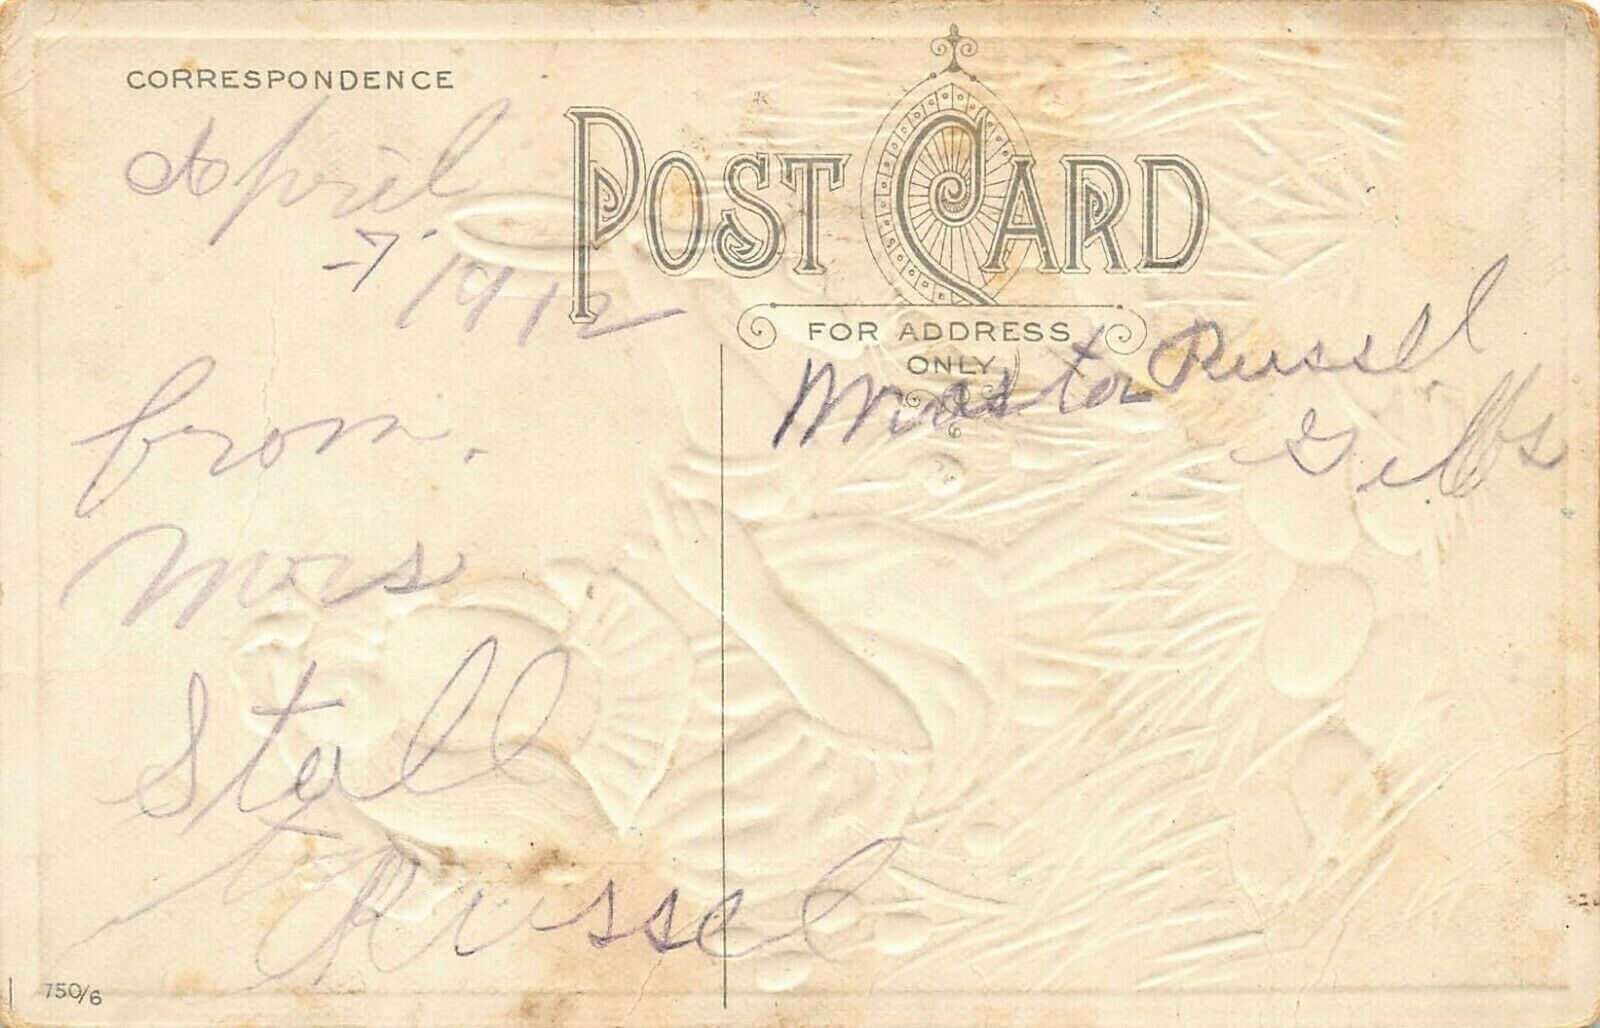 CORRESPONDENCE
POST CARD
FOR ADDRESS
ONLY
April
7' 1912
from.
Mrs
Stall
to
Russel
Master Russel
Gibbs
750/6